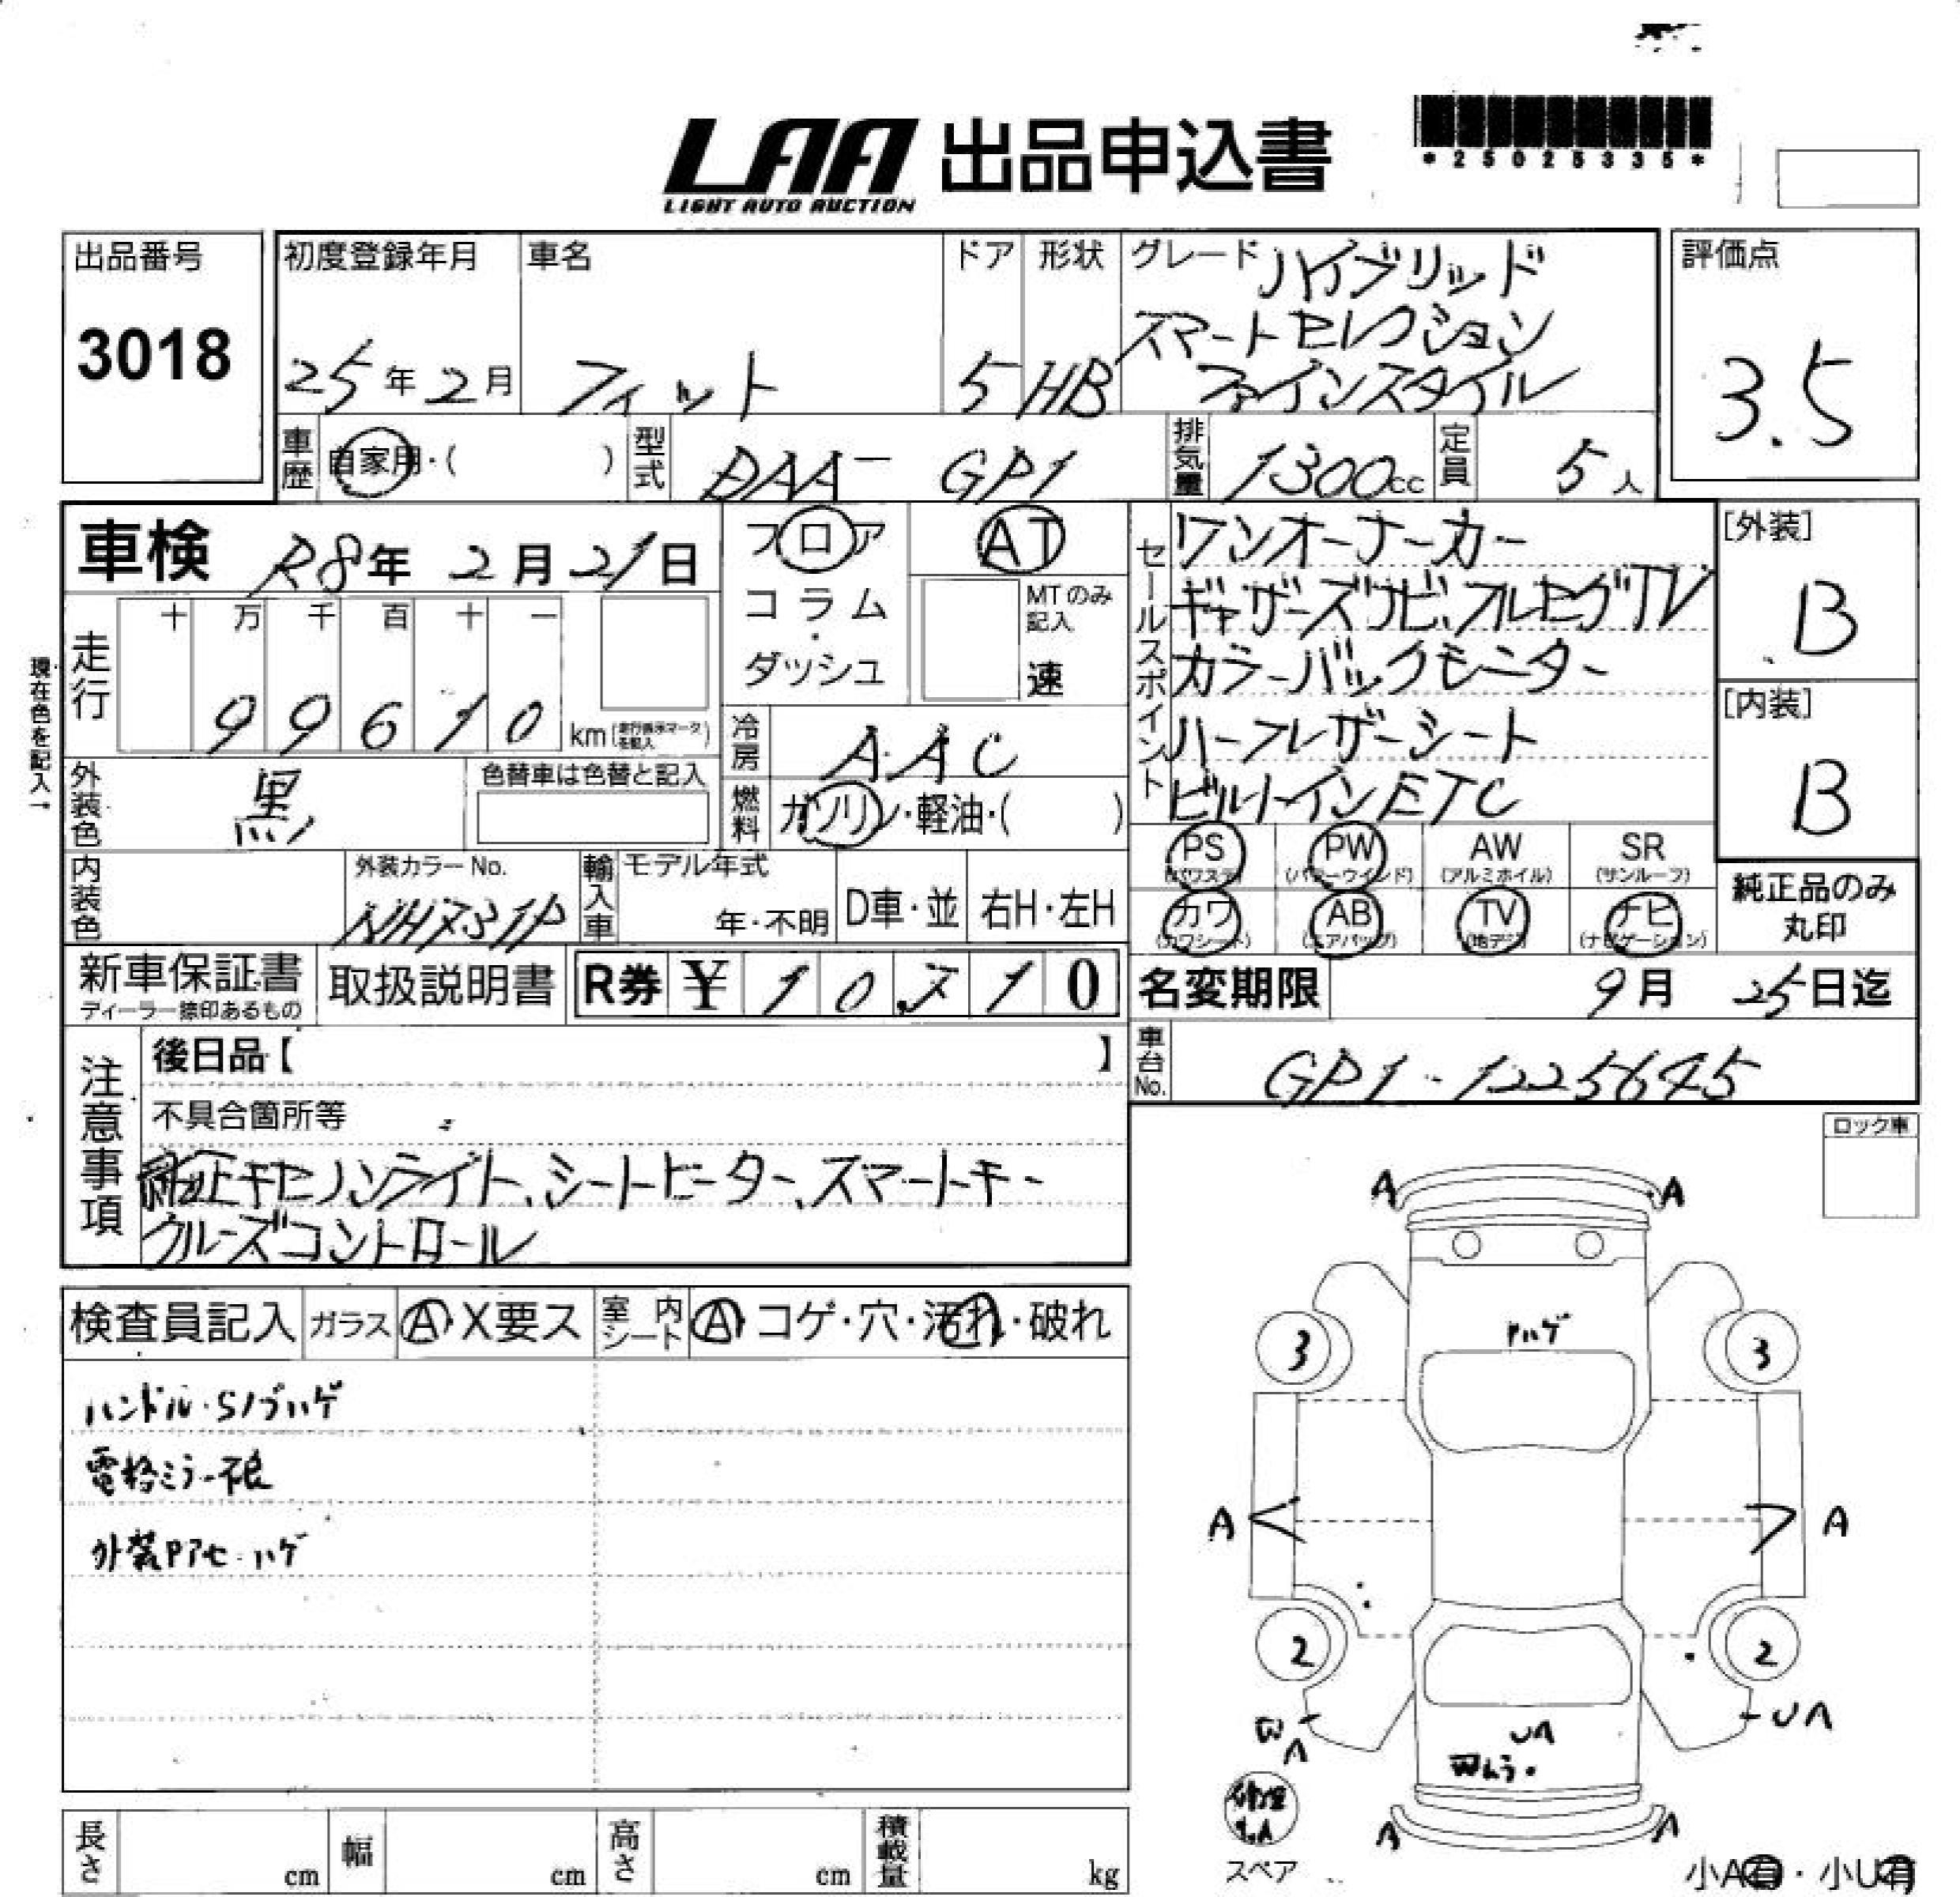 LAA 出品申込書
LIGHT AUTO AUCTION
*25025335*
出品番号
3018
初度登録年月
25年2月
車名
フィット
ドア
5
形状
HB
グレード ハイブリッド
スマートセレクション
ファインスタイル
評価点
3.5
車歴
自家用・( )
型式
DAA- GP1
排気量
1300cc
定員
5人
車検 R8年2月21日
フロア
コラム
・
ダッシュ
AT
MTのみ
記入
速
セールスポイント
ワンオーナーカー
ギャザーズナビ、フルセグTV
カラーバックモニター
ハーフレザーシート
ビルトインETC
[外装]
B
[内装]
B
現在色を記入→
走行
十 万 千 百 十 一
9 9 6 1 0
km(走行表示マークを記入)
冷房
AAC
外装色
黒
色替車は色替と記入
燃料
ガソリン・軽油・( )
PS
(パワステ)
PW
(パワーウインド)
AW
(アルミホイル)
SR
(サンルーフ)
カワ
(カワシート)
AB
(エアバッグ)
TV
(地デジ)
ナビ
(ナビゲーション)
純正品のみ
丸印
内装色
外装カラーNo.
NH731P
輸入車
モデル年式
年・不明
D車・並
右H・左H
新車保証書
ディーラー捺印あるもの
取扱説明書
R券 ¥ 1 0 7 1 0
名変期限 9月25日迄
車台No.
GP1-1225645
注意事項
後日品【 】
不具合箇所等
純正キセノンライト、シートヒーター、スマートキー
クルーズコントロール
ロック車
検査員記入
ガラス
A X要ス
室内シート
A コゲ・穴・汚れ・破れ
ハンドル・Sノブハゲ
電格ミラー不良
外装Pアセ・ハゲ
A A
Pハゲ
3 3
A A
2 2
W
A
UA
UA
スペア
A A
小A有・小U有
長さ cm
幅 cm
高さ cm
積載量 kg